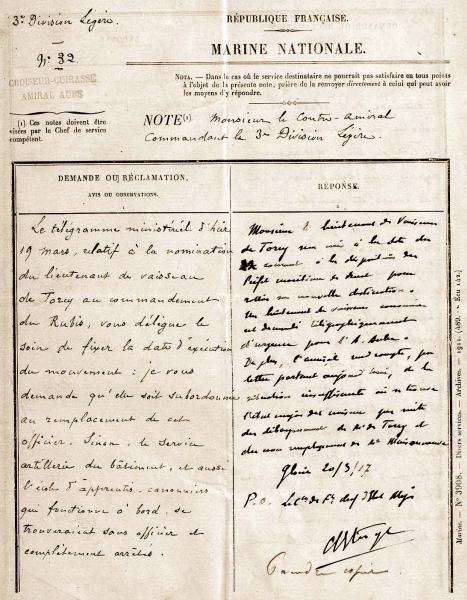 3e Division Légère.
No 32
CROISEUR-CUIRASSÉ
AMIRAL AUBE
(1) Ces notes doivent être
visées par le Chef de service
compétent.
RÉPUBLIQUE FRANÇAISE.
MARINE NATIONALE.
NOTA. — Dans le cas où le service destinataire ne pourrait pas satisfaire en tous points
à l'objet de la présente note, prière de la renvoyer directement à celui qui peut avoir
les moyens d'y répondre.
NOTE(1). Monsieur le Contre-Amiral
Commandant la 3me Division Légère.
DEMANDE OU RÉCLAMATION,
AVIS OU OBSERVATIONS.
Le télégramme ministériel d'hier
19 mars, relatif à la nomination
du lieutenant de vaisseau
de Torcy au commandement
du Rubis, vous délègue le
soin de fixer la date d'exécution
du mouvement : je vous
demande qu'elle soit subordonnée
au remplacement de cet
officier. Sinon, le service
artillerie du bâtiment, et aussi
l'école d'apprentis-canonniers
qui fonctionne à bord, se
trouveraient sans officier et
complètement arrêtés.
RÉPONSE.
Monsieur le lieutenant de Vaisseau
de Torcy sera mis à la date du
courant à la disposition du
Préfet maritime de Brest pour
rallier sa nouvelle destination.
Un lieutenant de vaisseau canonnier
est demandé télégraphiquement
d'urgence pour l'A. Aube.
De plus, l'amiral rend compte, par
lettre partant aujourd'hui, de la
situation insuffisante où se trouve
l'état-major des croiseurs par suite
du débarquement de Mr de Torcy et
du non remplacement de Mr
Gloire 20/3/17
P.O. Le Cne de Fte
Prendre copie
Marine. — No 3908. — Divers services. — Archives. — 1911. (489.